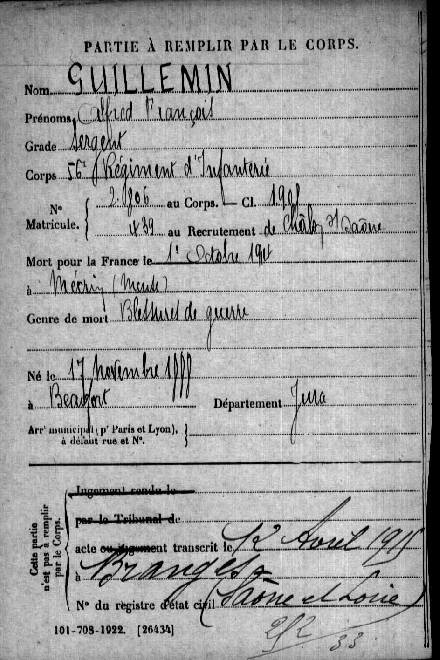 PARTIE À REMPLIR PAR LE CORPS.
Nom GUILLEMIN
Prénoms Alfred François
Grade Sergent
Corps 56e Régiment d'Infanterie
N° Matricule. { 2.806 au Corps. — Cl. 1908
439 au Recrutement de Châlon s/ Saône
Mort pour la France le 1er Octobre 1914
à Mécrin (Meuse)
Genre de mort Blessures de guerre
Né le 17 novembre 1888
à Beaufort Département Jura
Arrt municipal (pr Paris et Lyon), à défaut rue et N°. {
Cette partie n'est pas à remplir par le Corps.
Jugement rendu le
par le Tribunal de
acte ou jugement transcrit le 12 Avril 1915
à Branges
N° du registre d'état civil (Saône et Loire)
101-708-1922. [26434]
252/33